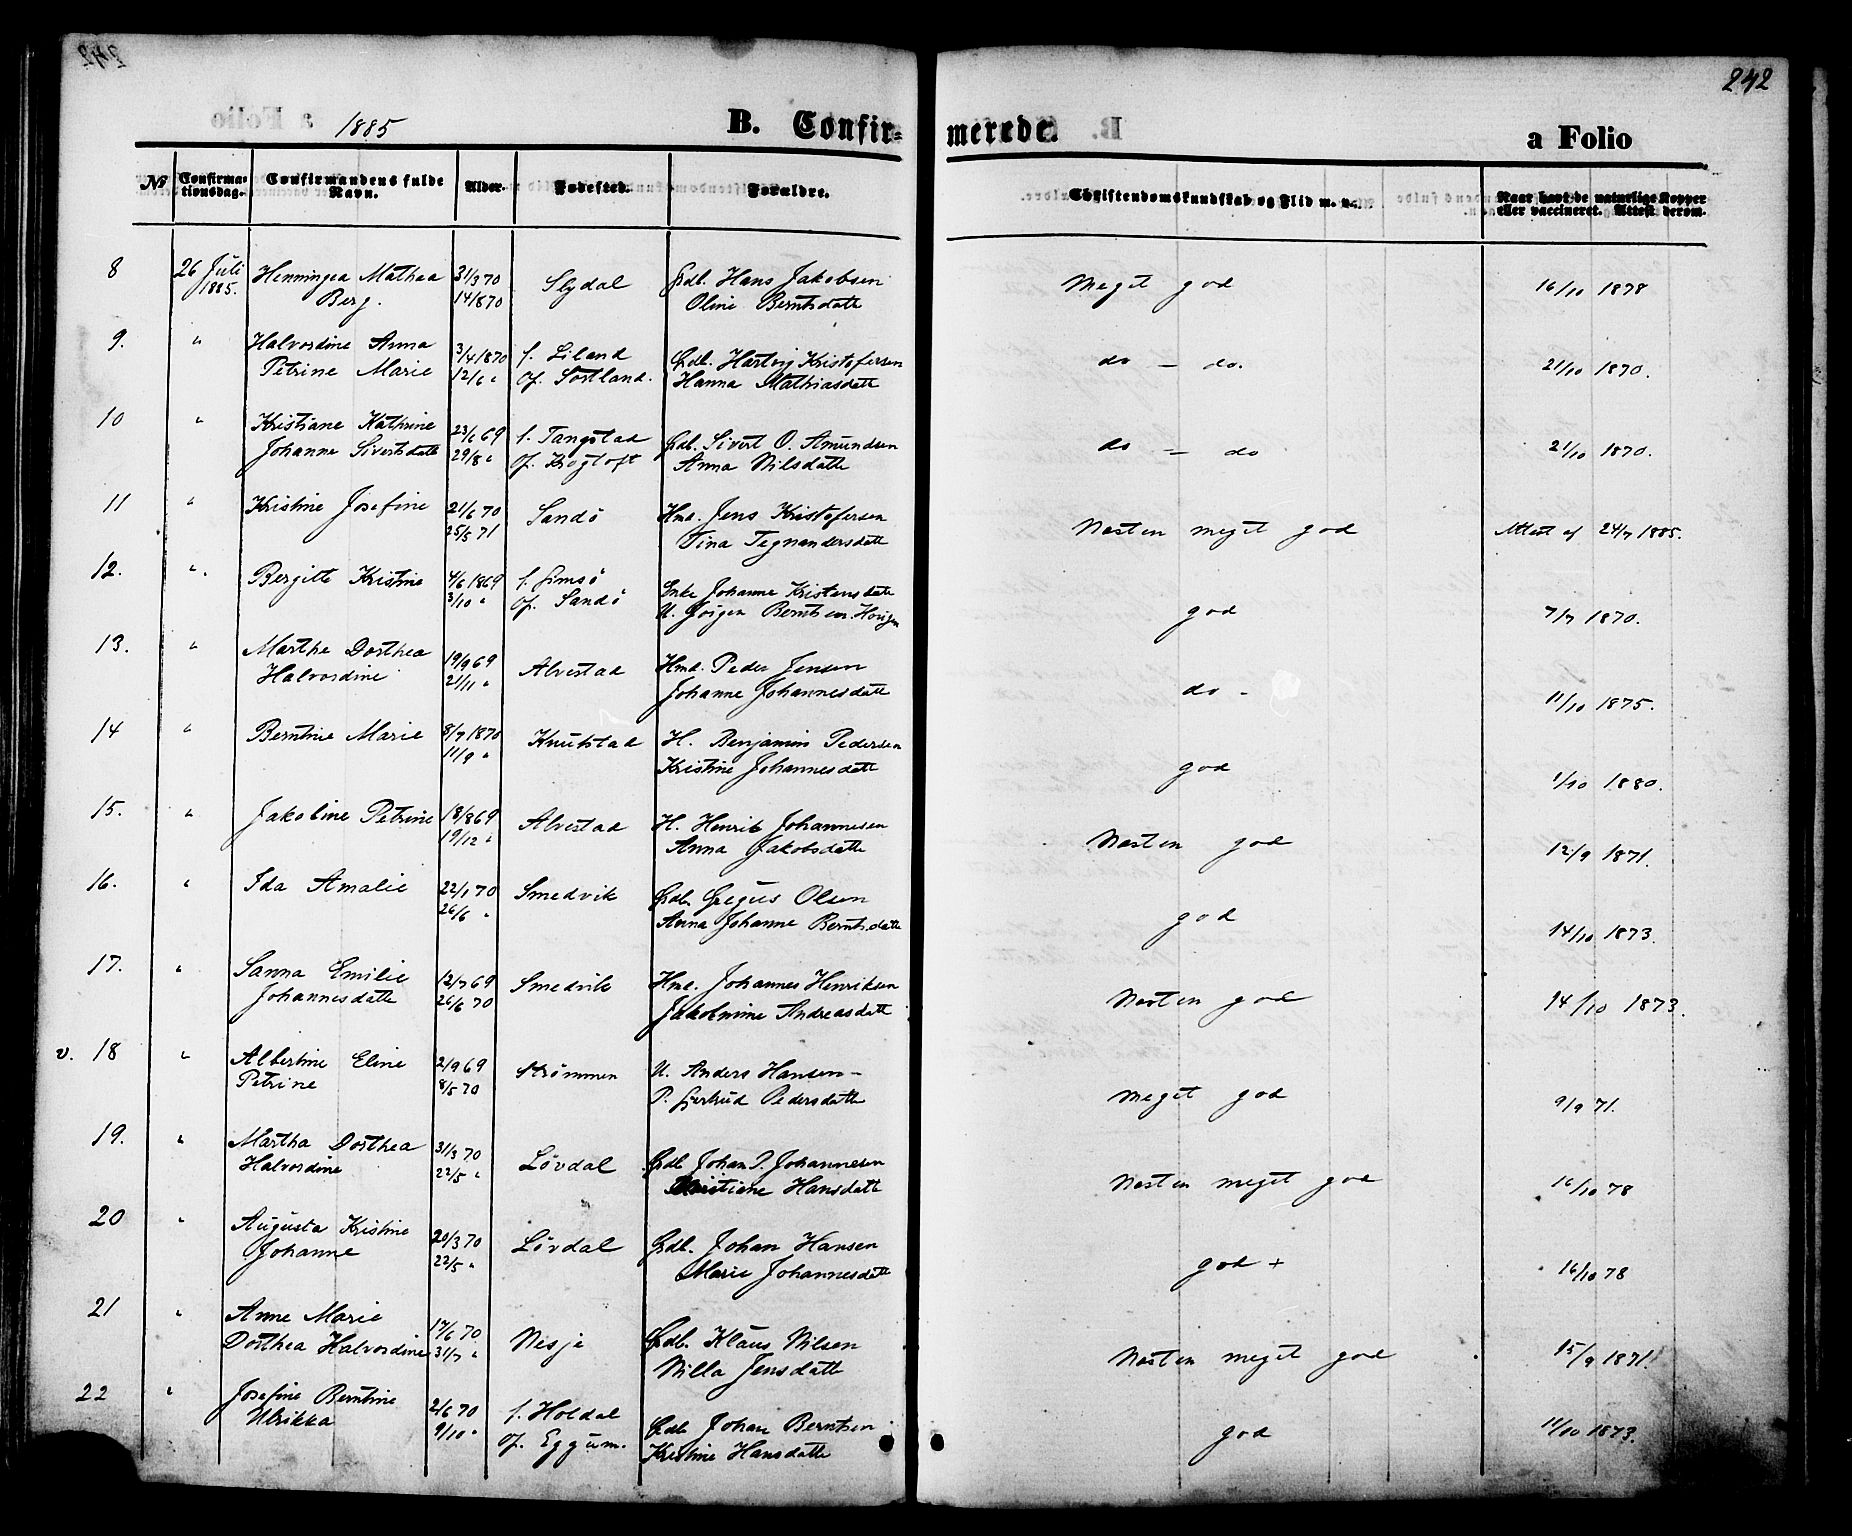 242
1885
B. Confir=
merede.
a Folio
No
Confirma-
tionsdag.
Confirmandens fulde
Navn.
Alder.
Fødested.
Forældre.
Christendomskundskab og Flid m. v.
Naar havt de naturlige Kopper
eller vaccineret. Attest derom.
8 26 Juli Henningea Mathea 31/3 70 Slydal Gdb. Hans Jakobsen Meget god 16/10 1878
1885. Berg. 14/8 70 Oline Berntsdatte
9. " Halvordine Anna 3/4 1870 f. Liland Gdb. Hartvig Kristofersen do — do. 21/10 1870.
Petrine Marie 12/6 " of. Sortland. Hanna Mathiasdatt
10 " Kristiane Kathrine 23/6 69 f. Tangstad Gdb. Sivert O. Amundsen do — do 21/10 1870.
Johanne Sivertsdatt 29/8 " of. Krogtoft Anna Nilsdatte
11 " Kristine Josefine 21/6 70 Sandö Hmd. Jens Kristofersen Næsten meget god Attest af 24/7 1885.
25/5 71 Tina Tegnandersdatt
12. ". Bergitte Kristine 4/6 1869 f. Gimsö Enke Johanne Kristensdatte god 7/7 1870.
3/10 " of. Sandö U. Jörgen Berntsen
13. " Marthe Dorthea 19/9 69 Alvestad Hmd. Peder Jensen do - 11/10 1875.
Halvordine 21/11 " Johanne Johannesdatt
14 " Berntine Marie 8/7 1870 Knutstad H. Benjamin Pedersen god 1/10 1880.
11/9 " Kristine Johannesdatt
15. " Jakobine Petrine 18/8 69 Alvestad H. Henrik Johannesen Næsten god 12/9 1871.
19/12 " Anna Jakobsdatte
16. " Ida Amalie 22/1 70 Smedvik Gdb. Gregus Olsen god 14/10 1873.
26/6 " Anna Johanne Berntsdatte
17. " Sanna Emilie 12/7 69 Smedvik Hmd. Johannes Henriksen Næsten god 14/10 1873.
Johannesdatte 26/6 70 Jakobmine Andreasdatt
v. 18 " Albertine Eline 2/9 69 Strømmen U. Anders Hansen — meget god 9/9 71.
Petrine 8/5 70 P. Gjertrud Pedersdatte
19. " Martha Dorthea 31/3 70 Lövdal Gdb Johan P. Johannesen Næsten meget god 16/10 78
Halvordine 22/5 " Kristiene Hansdatt
20 " Augusta Kristine 20/3 70 Lövdal Gdb. Johan Hansen god + 16/10 78
Johanne 22/5 " Marie Johannesdatt
21 " Anne Marie 17/6 70 Nesje Gdb. Klaus Nilsen Næsten meget god 15/9 1871
Dorthea Halvordine 31/7 " Nilla Jensdatte
22 " Josefine Berntine 2/6 70 f. Holdal Gdb Johan Berntsen god 11/10 1873.
Ulrikka 9/10 " of. Eggum. Kristine Hansdatte